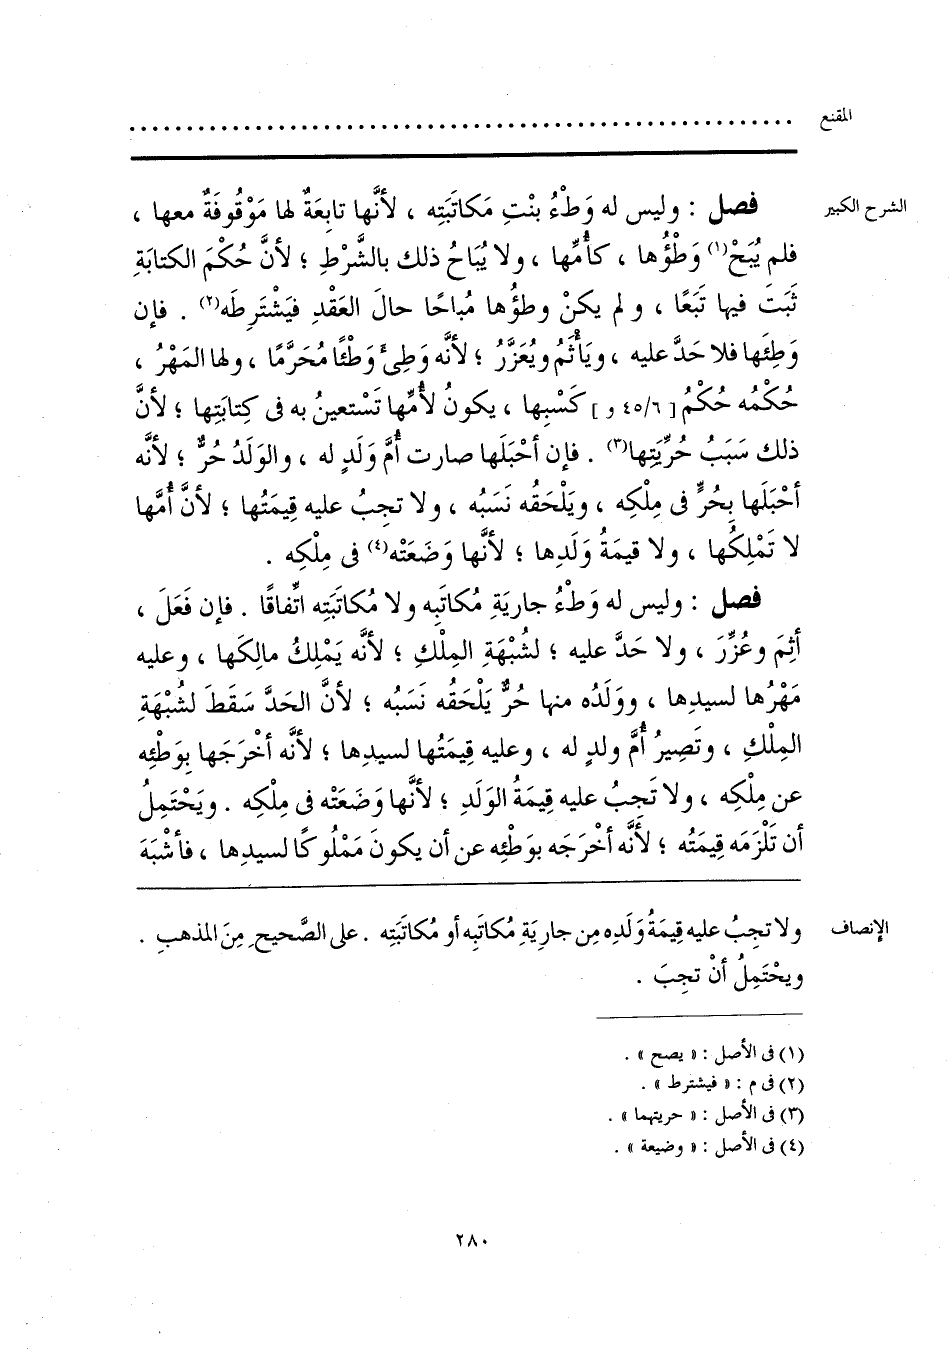 المقنع ................................................................
الشرح الكبير فصل : وليس له وَطْءُ بنْتِ مَكاتَبَتِه ، لأنَّها تابِعَةٌ لها مَوْقُوفَةٌ معها ،
فلم يُبَحْ(١) وَطْؤُها ، كأُمِّها ، ولا يُبَاحُ ذلك بالشَّرْطِ ؛ لأنَّ حُكْمَ الكتابَةِ
ثَبَتَ فيها تَبَعًا ، و لم يكنْ وطؤُها مُباحًا حالَ العَقْدِ فيَشْتَرِطَه(٢) . فإن
وَطِئَها فلا حَدَّ عليه ، ويَأْثَمُ ويُعَزَّرُ ؛ لأنَّه وَطِئَ وَطْئًا مُحَرَّمًا ، ولها المَهْرُ ،
حُكْمُه حُكْمُ [ ٤٥/٦ و ] كَسْبِها ، يكونُ لأُمِّها تَسْتعينُ به فى كتابَتِها ؛ لأنَّ
ذلك سَبَبُ حُرِّيَّتِها(٣) . فإن أحْبَلَها صارت أُمَّ وَلَدٍ له ، والوَلَدُ حُرٌّ ؛ لأنَّه
أحْبَلَها بِحُرٍّ فى مِلْكِه ، ويَلْحَقُه نَسَبُه ، ولا تجبُ عليه قِيمَتُها ؛ لأنَّ أُمَّها
لا تَمْلِكُها ، ولا قيمَةُ وَلَدِها ؛ لأنَّها وَضَعَتْه(٤) فى مِلْكِه .
فصل : وليس له وَطْءُ جاريَةِ مُكاتَبِه ولا مُكاتَبَتِه اتِّفاقًا . فإن فَعَلَ ،
أثِمَ وعُزِّرَ ، ولا حَدَّ عليه ؛ لشُبْهَةِ المِلْكِ ؛ لأنَّه يَمْلِكُ مالِكَها ، وعليه
مَهْرُها لسيدِها ، ووَلَدُه منها حُرٌّ يَلْحَقُه نَسَبُه ؛ لأنَّ الحَدَّ سَقَطَ لشُبْهَةِ
المِلْكِ ، وتَصِيرُ أُمَّ ولدٍ له ، وعليه قِيمَتُها لسيدِها ؛ لأنَّه أخْرَجَها بوَطْئِه
عن مِلْكِه ، ولا تَجِبُ عليه قِيمَةُ الوَلَدِ ؛ لأنَّها وَضَعَتْه فى مِلْكِه . ويَحْتَمِلُ
أن تَلْزَمَه قِيمَتُه ؛ لأنَّه أخْرَجَه بوَطْئِه عن أن يكونَ مَمْلُوكًا لسيدِها ، فأشْبَهَ
الإنصاف ولا تجبُ عليه قِيمَةُ وَلَدِه مِن جاريَةِ مُكاتَبِه أو مُكاتَبَتِه . على الصَّحيحِ مِنَ المذهبِ .
ويحْتَمِلُ أنْ تجِبَ .
(١) فى الأصل : « يصح » .
(٢) فى م : « فيشترط » .
(٣) فى الأصل : « حريتهما » .
(٤) فى الأصل : « وضيعة » .
٢٨٠